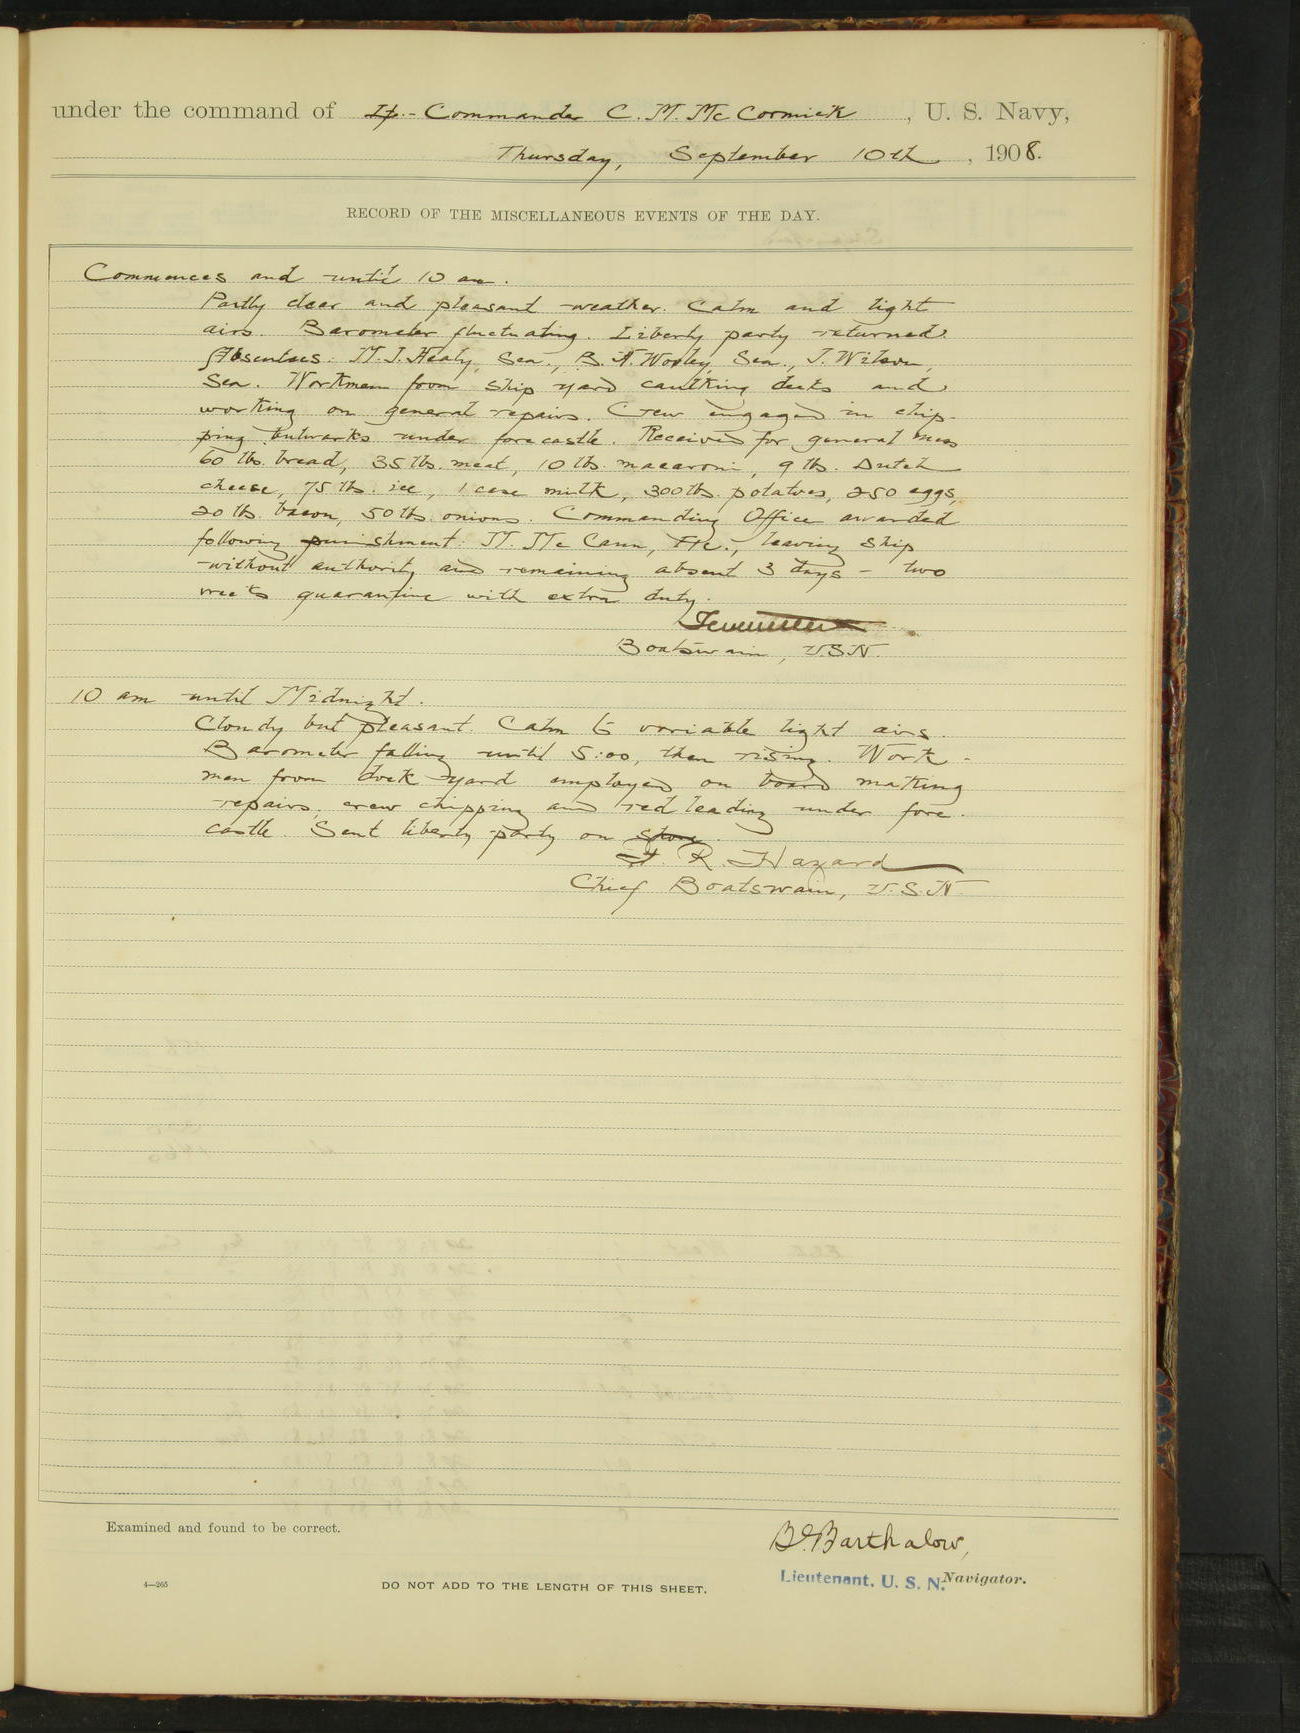 under the command of Lt.-Commander C. M. McCormick, U. S. Navy,
Thursday, September 10th, 1908.
RECORD OF THE MISCELLANEOUS EVENTS OF THE DAY.
Commences and until 10 am.
Partly clear and pleasant weather. Calm and light
airs. Barometer fluctuating. Liberty party returned.
Absentees: M. J. Healy, Sea., B. A. Worley, Sea., J. Wilson,
Sea. Workmen from ship yard caulking decks and
working on general repairs. Crew engaged in chip-
ping bulwarks under forecastle. Received for general mess
60 lbs. bread, 35 lbs. meat, 10 lbs. macaroni, 9 lbs. Dutch
cheese, 75 lbs. ice, 1 case milk, 300 lbs. potatoes, 250 eggs,
20 lbs. bacon, 50 lbs. onions. Commanding Officer awarded
following punishment: M. McCann, leaving ship
without authority and remaining absent 3 days - two
weeks quarantine with extra duty.
Boatswain, U.S.N.
10 am until Midnight.
Cloudy but pleasant. Calm to variable light airs.
Barometer falling until 5:00, then rising. Work-
men from dock yard employed on board making
repairs, crew chipping and red leading under fore-
castle. Sent liberty party on shore.
R. Hazard
Chief Boatswain, U.S.N.
Examined and found to be correct.
Barthalow,
Lieutenant, U. S. N. Navigator.
4—265
DO NOT ADD TO THE LENGTH OF THIS SHEET.